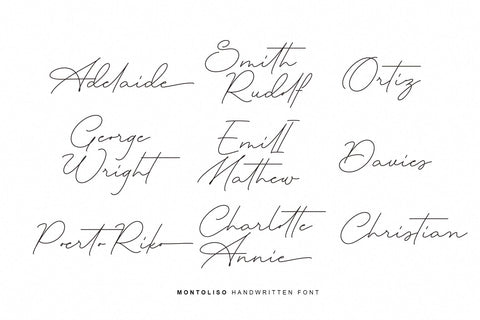 Adelaide
Smith
Rudolf
Ortiz
George
Wright
Emill
Mathew
Davies
Poerto Riko
Charlotte
Annie
Christian
MONTOLISO HANDWRITTEN FONT